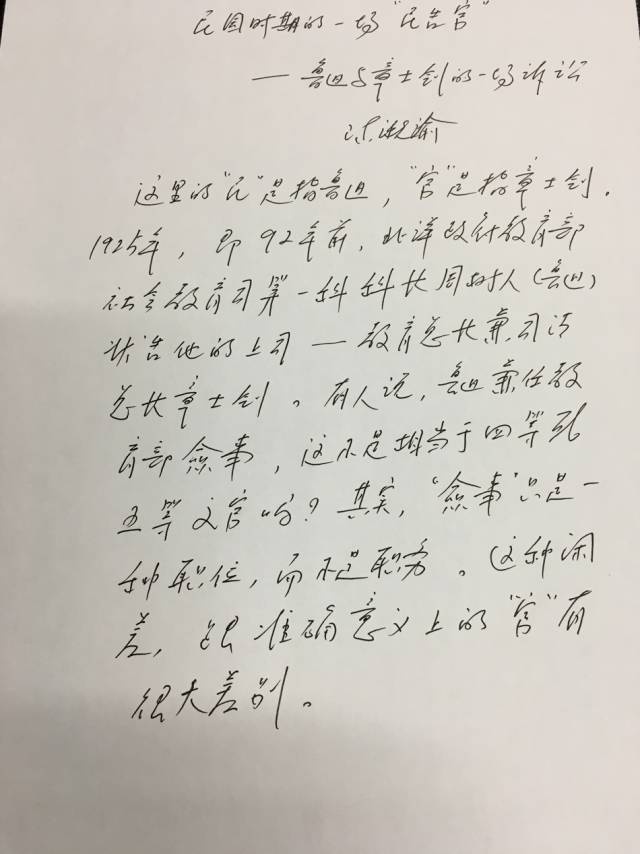 民国时期的一场"民告官"
——鲁迅与章士钊的一场诉讼
陈漱渝
这里的"民"是指鲁迅，"官"是指章士钊。
1925年，即92年前，北洋政府教育部
社会教育司第一科科长周树人（鲁迅）
状告他的上司——教育总长兼司法
总长章士钊。有人说，鲁迅兼任教
育部佥事，这不是相当于四等或
五等文官吗？其实，"佥事"只是一
种职位，而不是职务。这种闲
差，跟准确意义上的"官"有
很大差别。